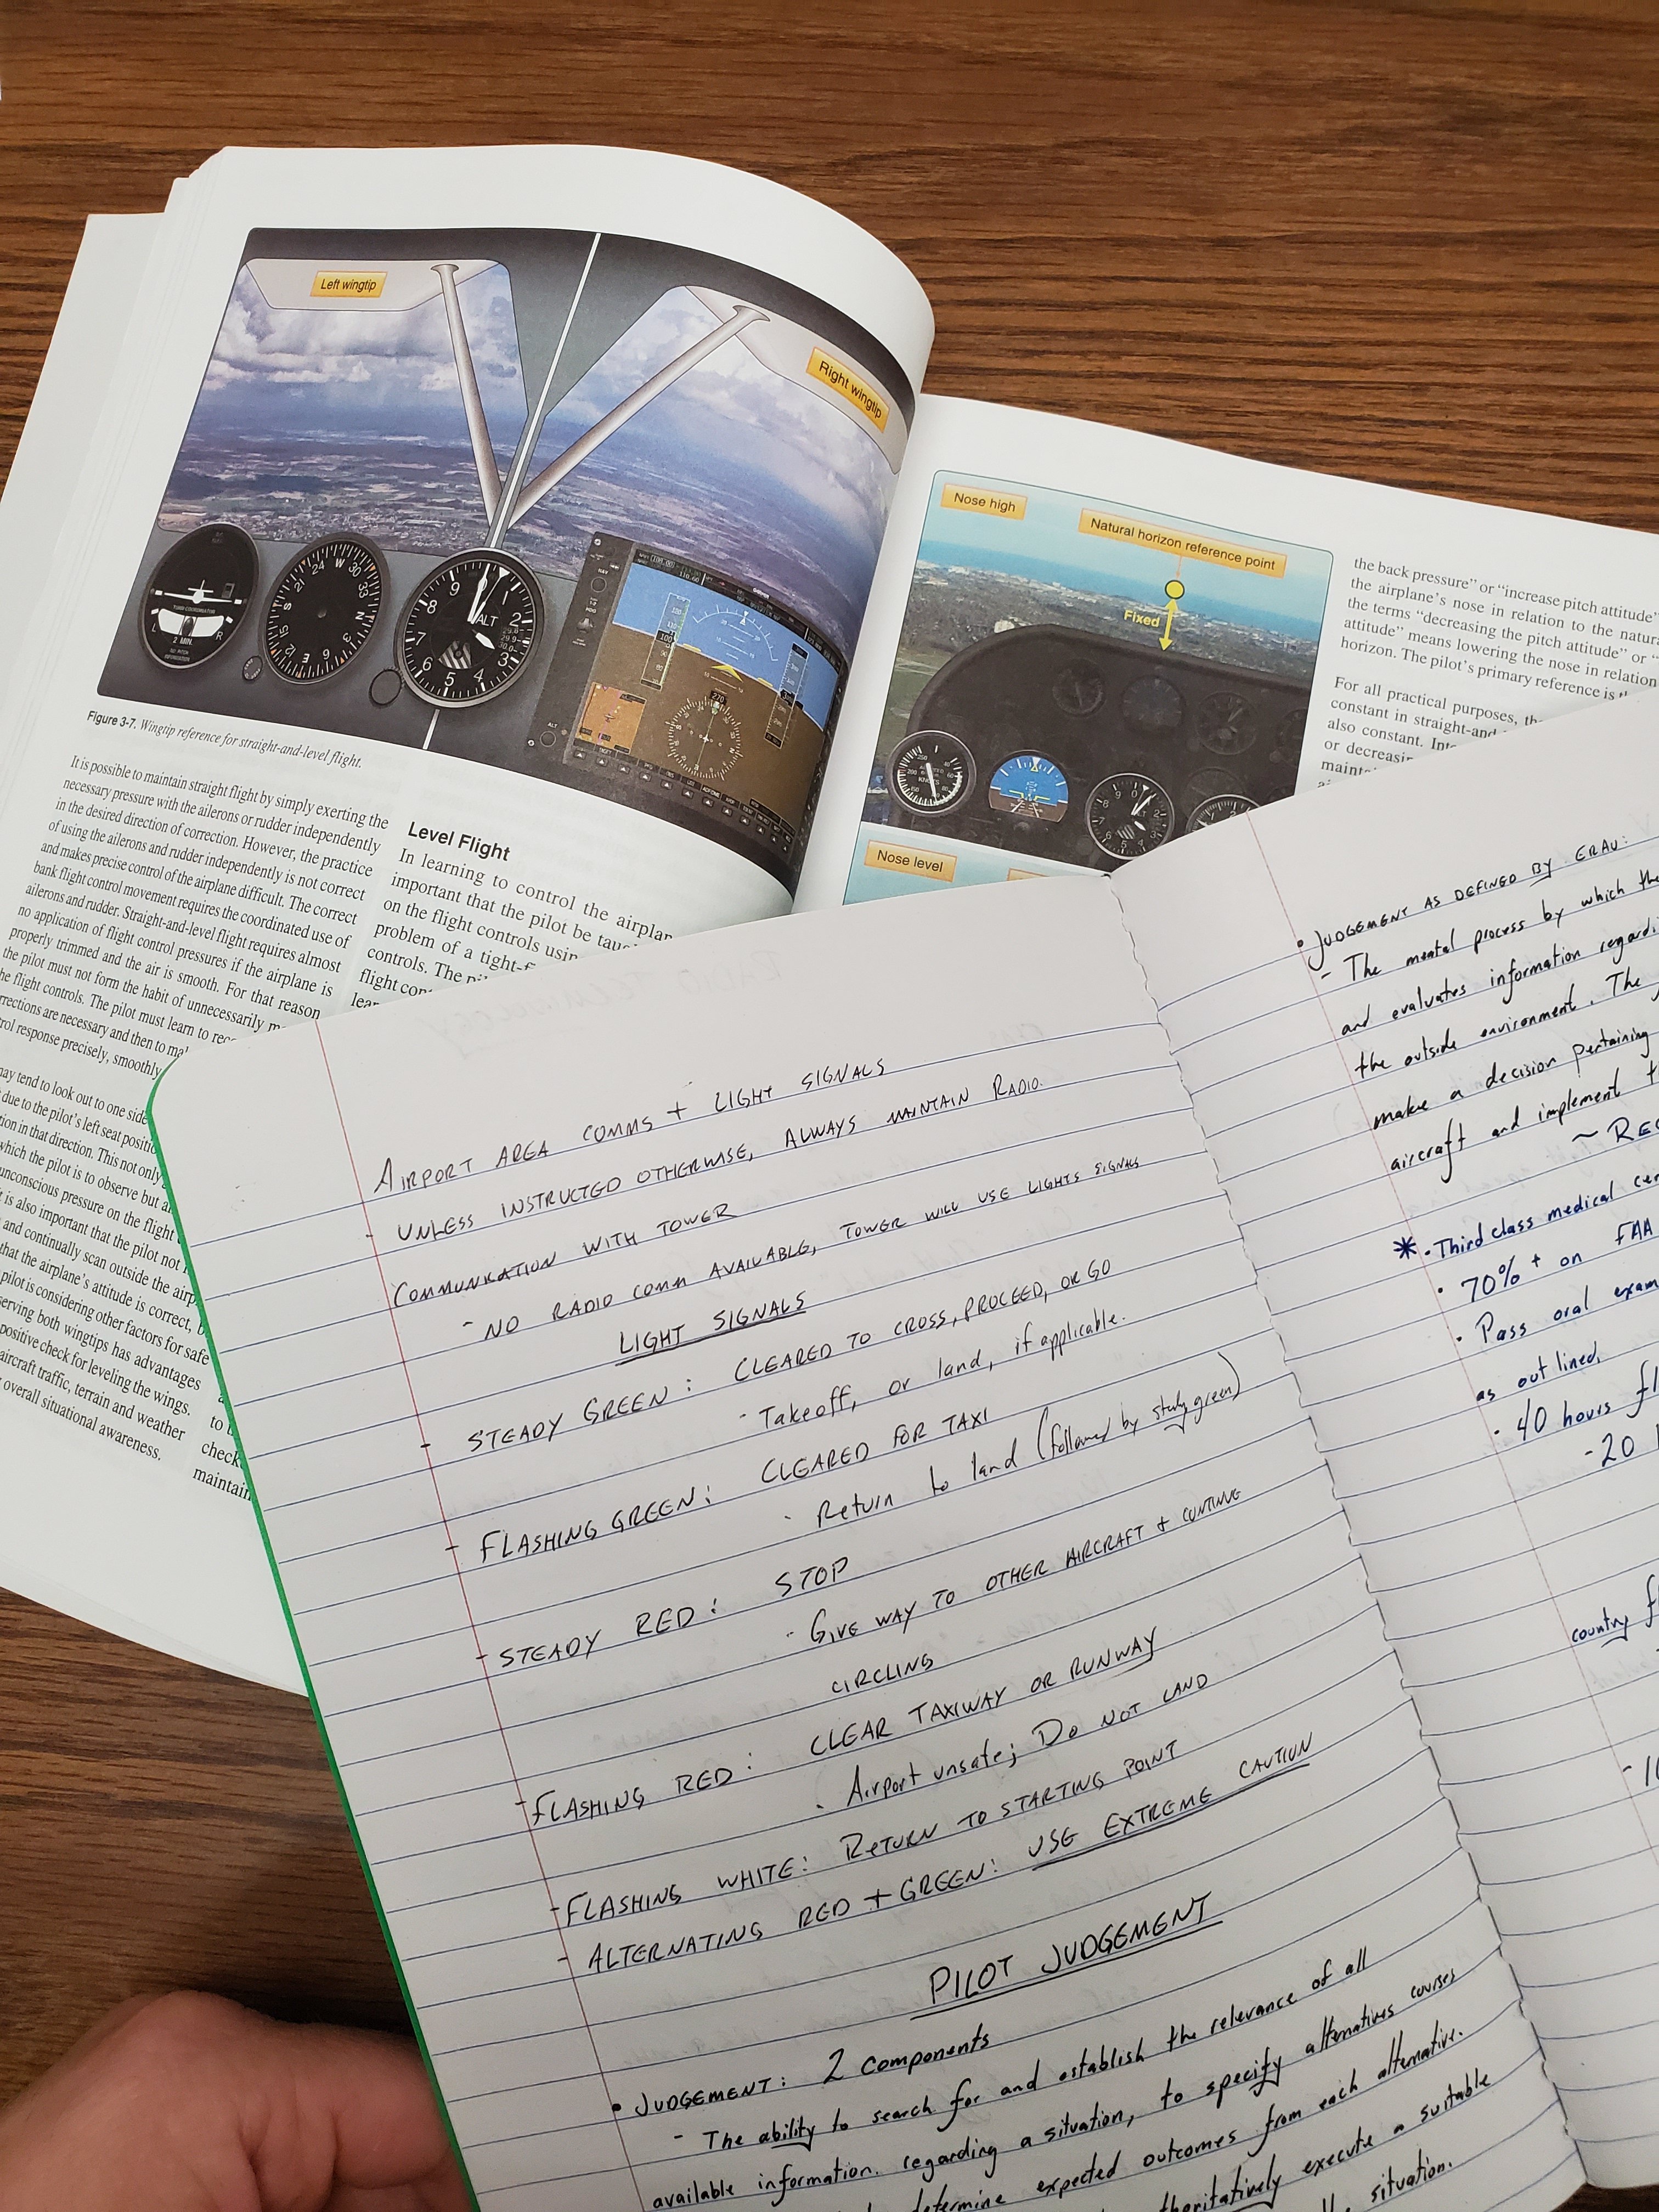 Left wingtip
Right wingtip
Figure 3-7. Wingtip reference for straight-and-level flight.
It is possible to maintain straight flight by simply exerting the
necessary pressure with the ailerons or rudder independently
in the desired direction of correction. However, the practice
of using the ailerons and rudder independently is not correct
and makes precise control of the airplane difficult. The correct
bank flight control movement requires the coordinated use of
ailerons and rudder. Straight-and-level flight requires almost
no application of flight control pressures if the airplane is
properly trimmed and the air is smooth. For that reason
the pilot must not form the habit of unnecessarily
the flight controls. The pilot must learn to
are necessary and then to
response precisely, smoothly
may tend to look out to one side
due to the pilot's left seat
in that direction. This not only
which the pilot is to observe but
unconscious pressure on the flight
is also important that the pilot not
and continually scan outside the
that the airplane's attitude is correct,
pilot is considering other factors for safe
both wingtips has advantages
positive check for leveling the wings.
aircraft traffic, terrain and weather
overall situational awareness.
Level Flight
In learning to control the
important that the pilot be
on the flight controls
problem of a
controls. The
flight
to
check
maintain
Nose high
Natural horizon reference point
Fixed
Nose level
the back pressure" or "increase pitch attitude"
the airplane's nose in relation to the
the terms "decreasing the pitch attitude" or
attitude" means lowering the nose in relation
horizon. The pilot's primary reference is
For all practical purposes,
constant in straight-and
also constant.
or
AIRPORT AREA COMMS + LIGHT SIGNALS
- UNLESS INSTRUCTED OTHERWISE, ALWAYS MAINTAIN RADIO
COMMUNICATION WITH TOWER
- NO RADIO COMM AVAILABLE, TOWER WILL USE LIGHTS SIGNALS
LIGHT SIGNALS
- STEADY GREEN: CLEARED TO CROSS, PROCEED, OR GO
- Takeoff, or land, if applicable.
- FLASHING GREEN: CLEARED FOR TAXI
- Return to land (followed by steady green)
- STEADY RED: STOP
- GIVE WAY TO OTHER AIRCRAFT + CONTINUE
CIRCLING
- FLASHING RED: CLEAR TAXIWAY OR RUNWAY
- Airport unsafe; DO NOT LAND
- FLASHING WHITE: RETURN TO STARTING POINT
- ALTERNATING RED + GREEN: USE EXTREME CAUTION
PILOT JUDGEMENT
• JUDGEMENT: 2 components
- The ability to search for and establish the relevance of all
available information regarding a situation, to specify alternatives courses
determine expected outcomes from each alternative.
execute a suitable
situation.
• JUDGEMENT AS DEFINED BY ERAU:
- The mental process by which the
and evaluates information
the outside environment. The
make a decision pertaining
aircraft and implement
* • Third class medical
• 70%+ on FAA
• Pass oral exam
as outlined.
• 40 hours
- 20
country